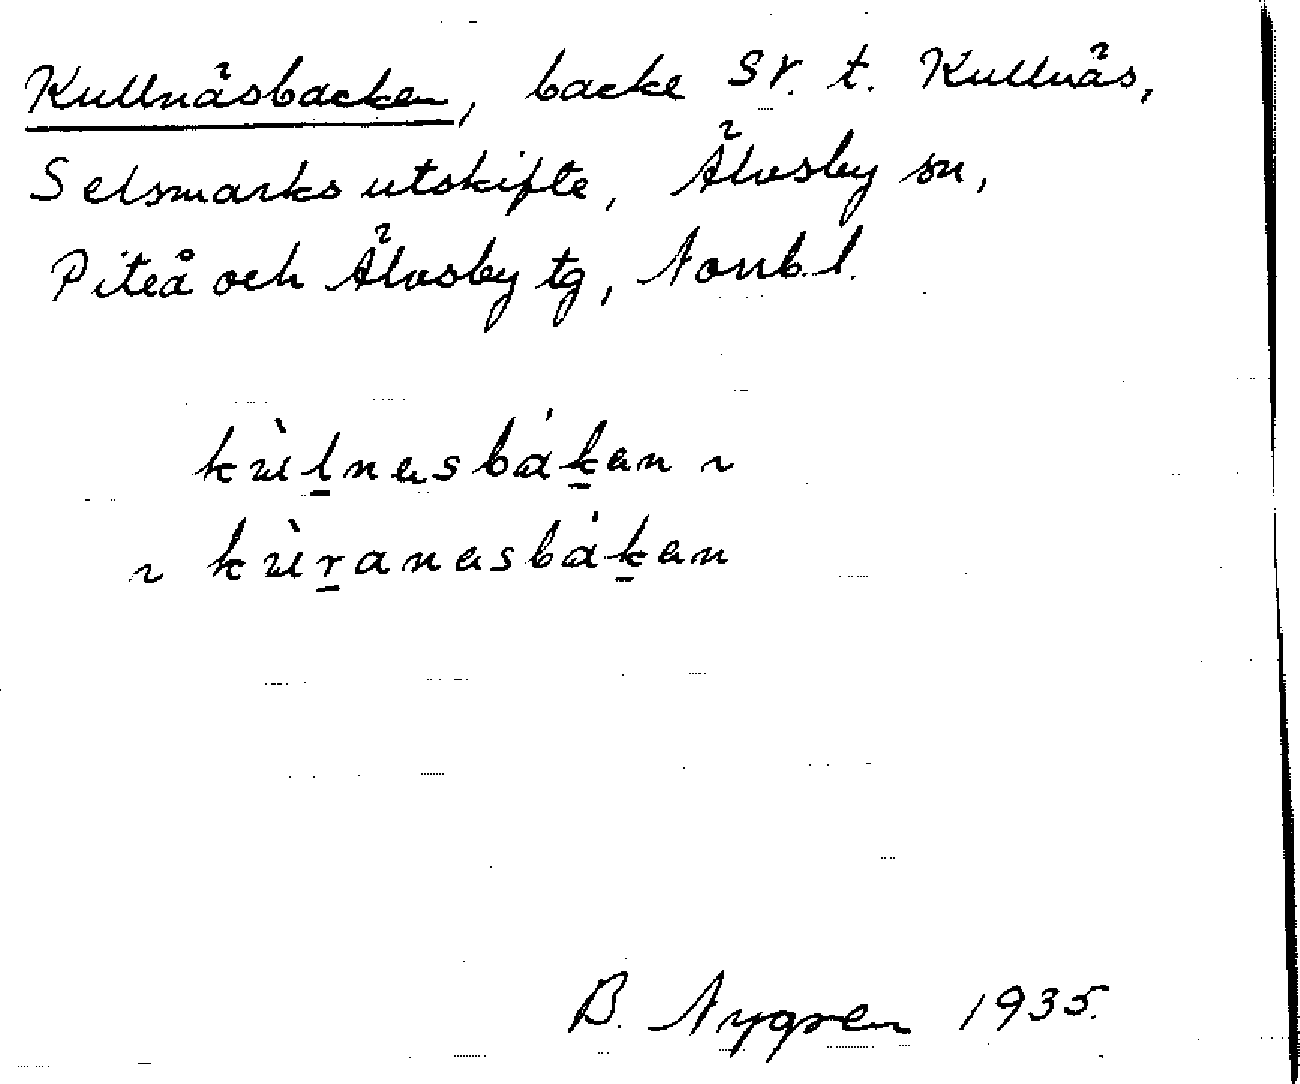 Kullnäsbacken, backe SV. t. Kullnäs,
Selsmarks utskifte, Älvsby sn,
Piteå och Älvsby tg, Norrb. l.
kùl̠nasbák̠an ~
~ kùr̠anasbák̠an
B. Nygren 1935.